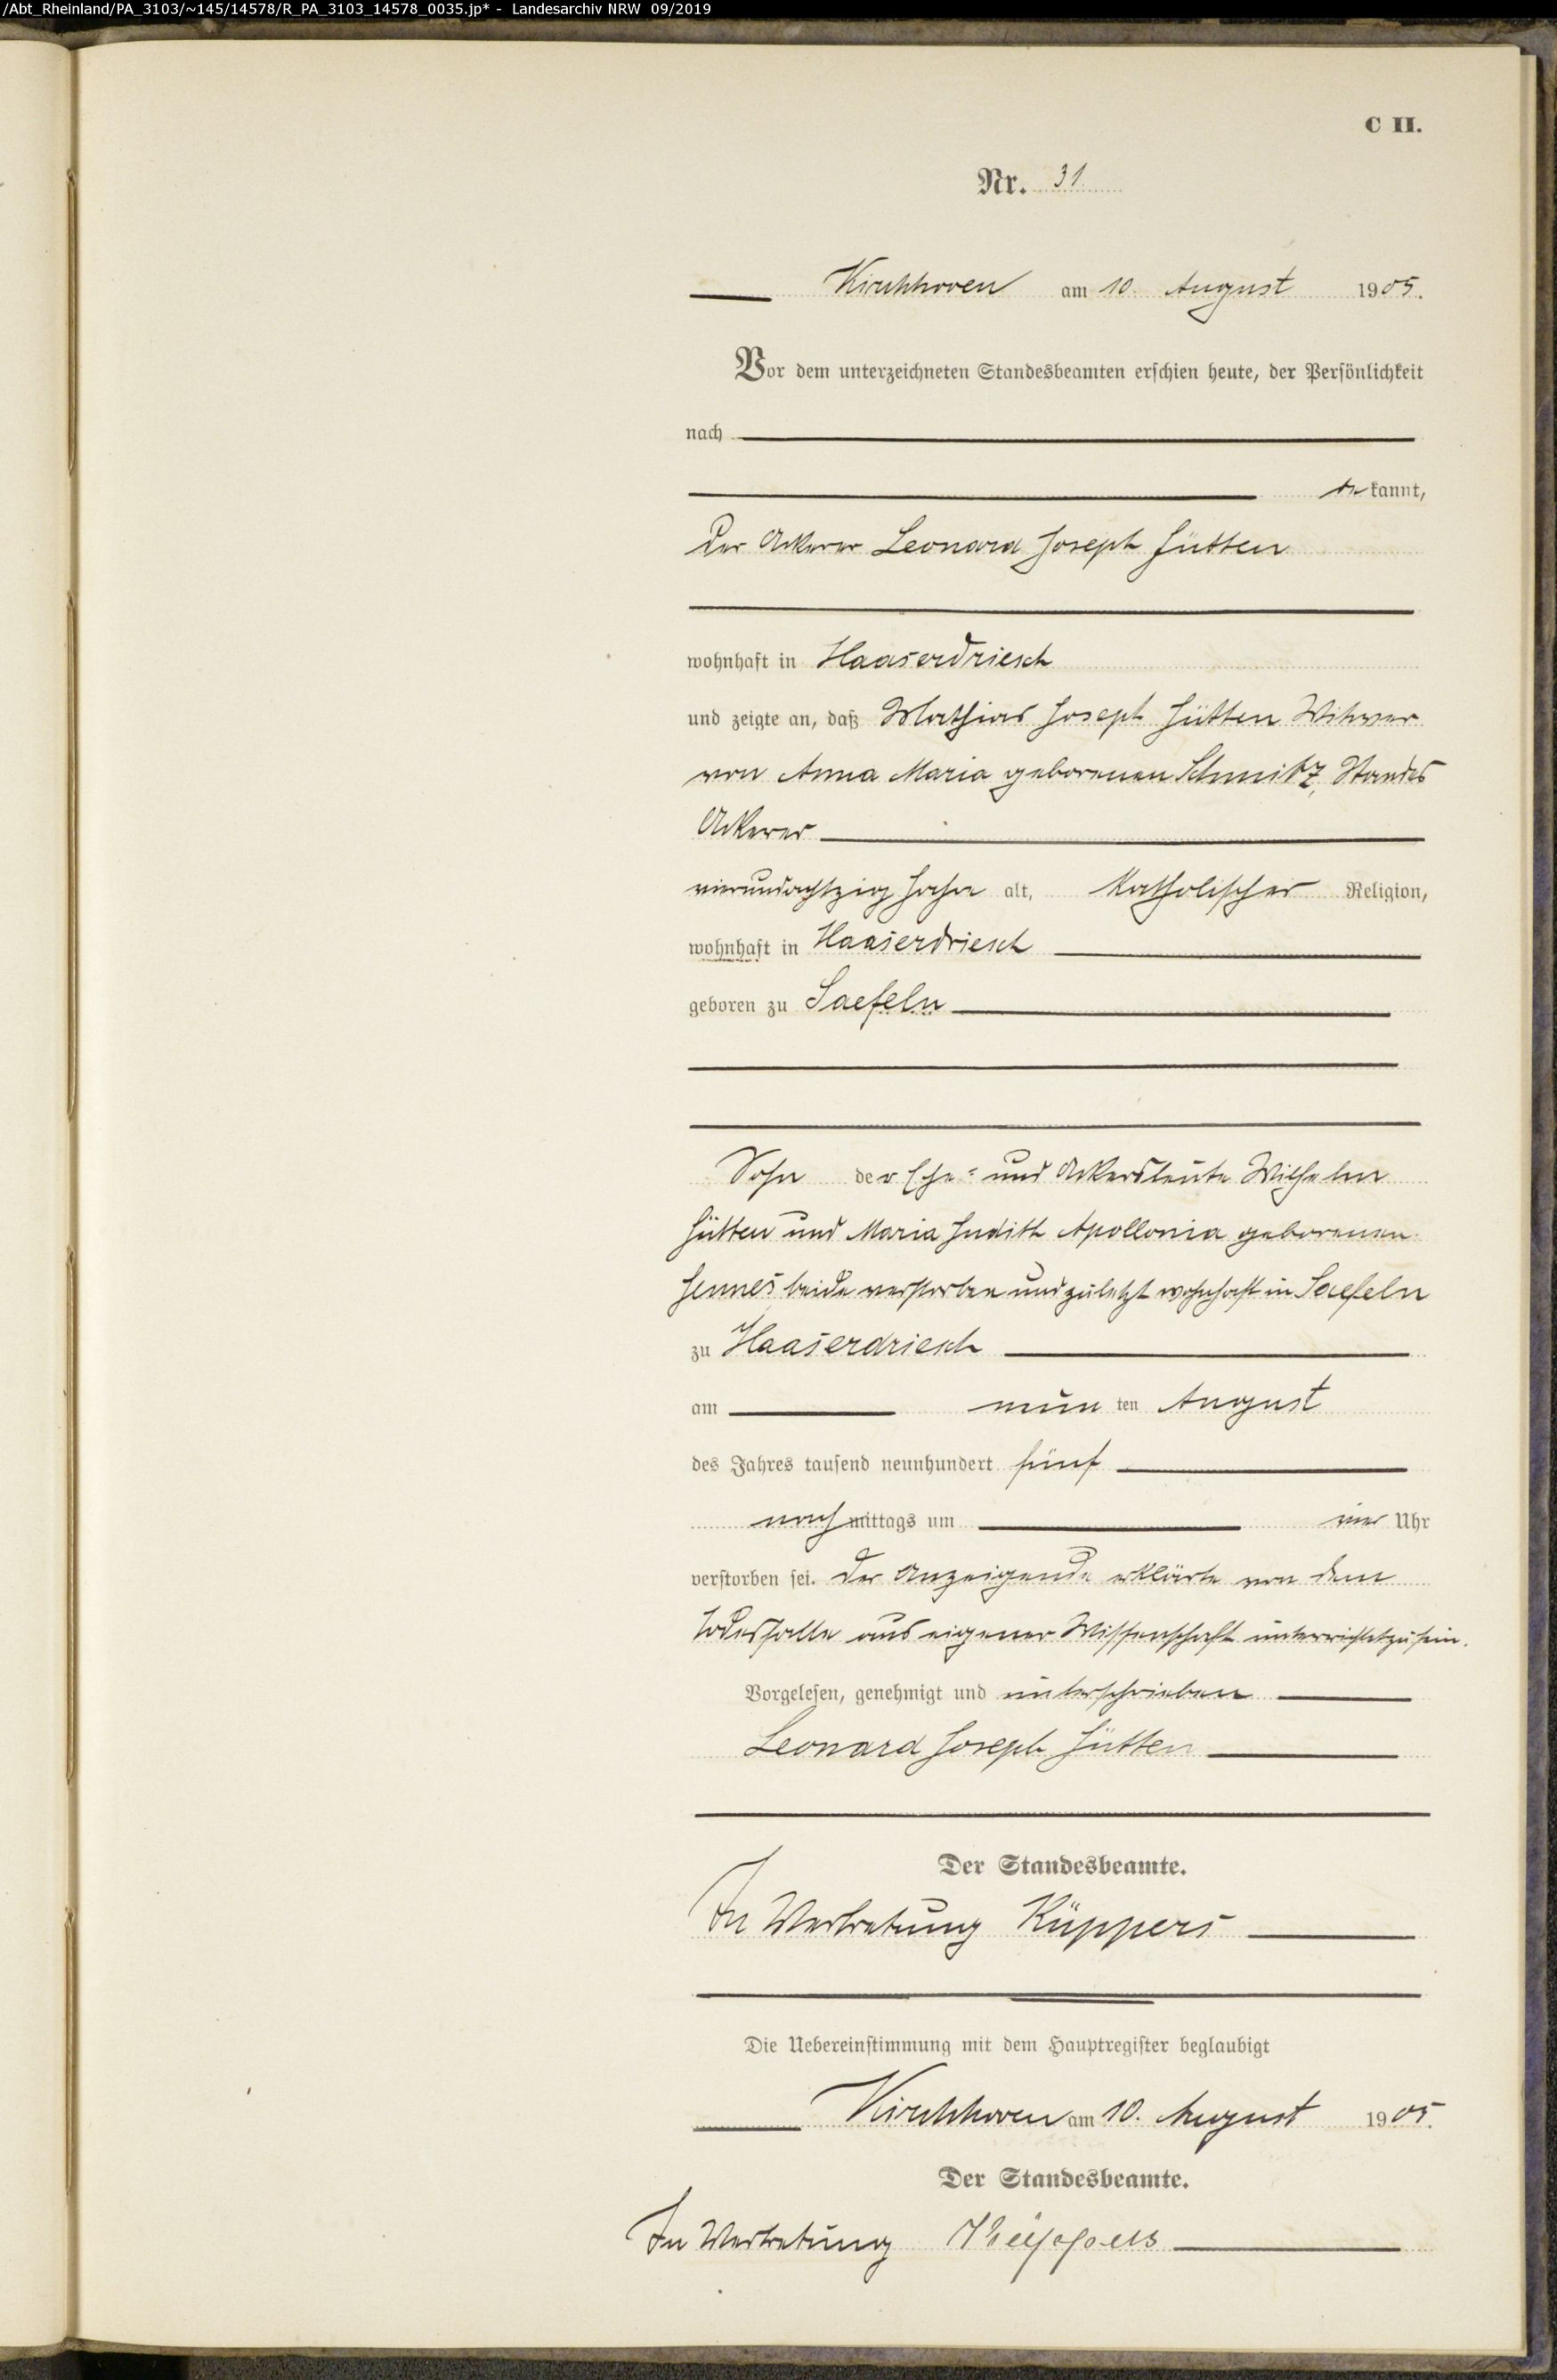 /Abt_Rheinland/PA_3103/~145/14578/R_PA_3103_14578_0035.jp* - Landesarchiv NRW 09/2019
C II.
Nr. 31
Kirchhoven am 10. August 1905.
Vor dem unterzeichneten Standesbeamten erschien heute, der Persönlichkeit
nach
be kannt,
der Ackerer Leonard Joseph Jütten
wohnhaft in Haaserdriesch
und zeigte an, daß Mathias Joseph Jütten Witwer
von Anna Maria geborenen Schmitz, Standes
Ackerer
vierundachtzig Jahre alt, katholischer Religion,
wohnhaft in Haaserdriesch
geboren zu Saefeln
Sohn der Ehe- und Ackersleute Wilhelm
Jütten und Maria Judith Apollonia geborenen
Jennes beide verstorben und zuletzt wohnhaft in Saefeln
zu Haaserdriesch
am neun ten August
des Jahres tausend neunhundert fünf
nach mittags um vier Uhr
verstorben sei. Der Anzeigende erklärte von dem
Todesfalle aus eigener Wissenschaft unterrichtet zu sein.
Vorgelesen, genehmigt und unterschrieben
Leonard Joseph Jütten
Der Standesbeamte.
In Vertretung Küppers
Die Uebereinstimmung mit dem Hauptregister beglaubigt
Kirchhoven am 10. August 1905.
Der Standesbeamte.
In Vertretung Küppers